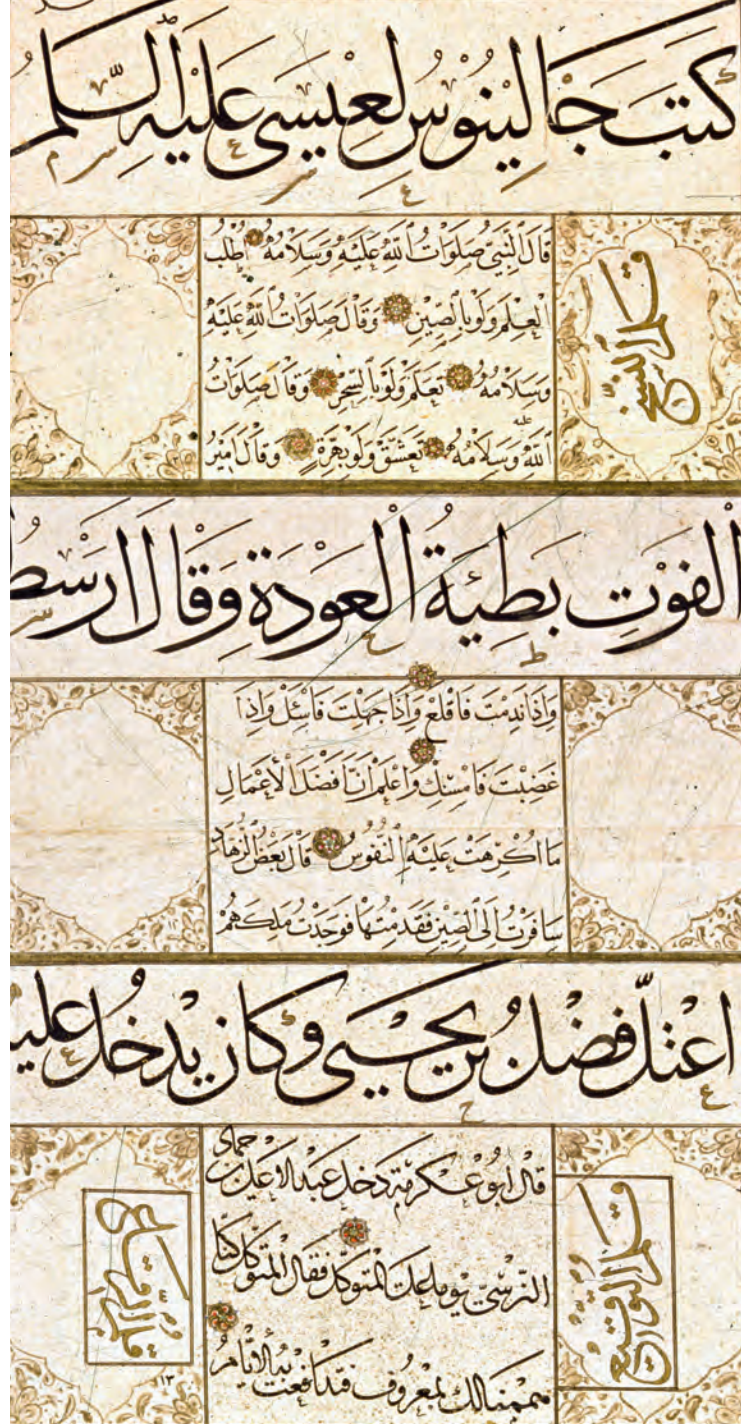 كتب جالينوس لعيسى عليه السلم
قَالَ النَّبِيّ صَلَوَاتُ اللهِ عَلَيْهِ وَسَلَامُهُ اطلب
العِلمَ ولَو بِالصِّينِ وَقَالَ صَلَوَاتُ اللهِ عَلَيْهِ
وَسَلَامُهُ تعَلّم ولَو بالسِّحْرِ وقالَ صَلَوَات
الله عليه وسَلَامُهُ تعَشّقْ ولَو بِهِرَّةٍ وَقَالَ امِيرُ
قلم النسخ
الفَوْتِ بَطِيئَةُ العَوْدَةِ وَقَالَ ارسط
وَاِذَا نَدِمْتَ فَاقْلعْ وَاِذَا جَهِلْتَ فَاسْئَلْ وَاِذَا
غَضِبْتَ فَامْسِكْ وَاعْلَمْ اَنَّ اَفْضَلَ الْاَعْمَالِ
مَا اُكْرِهَتْ عَلَيْهِ النُّفُوسُ قَالَ بَعْضُ الزُّهَّادِ
سَافَرْتُ اِلَى الصِّينِ فَقَدِمْتُهَا فَوَجَدْتُ مَلِكَهُمْ
١٢
اعْتلّ فضلُ بنُ يَحْيَى وكان يدخل عليه
قال ابو عكرمة دخل عبد الاعلى بن حماد
النرسيّ يوما على المتوكّل فقال المتوكّل كنّا
هممنا لك بمعروف فتدافعت به الايّامُ
قلم التوقيع
قلم الرقاع
١٣